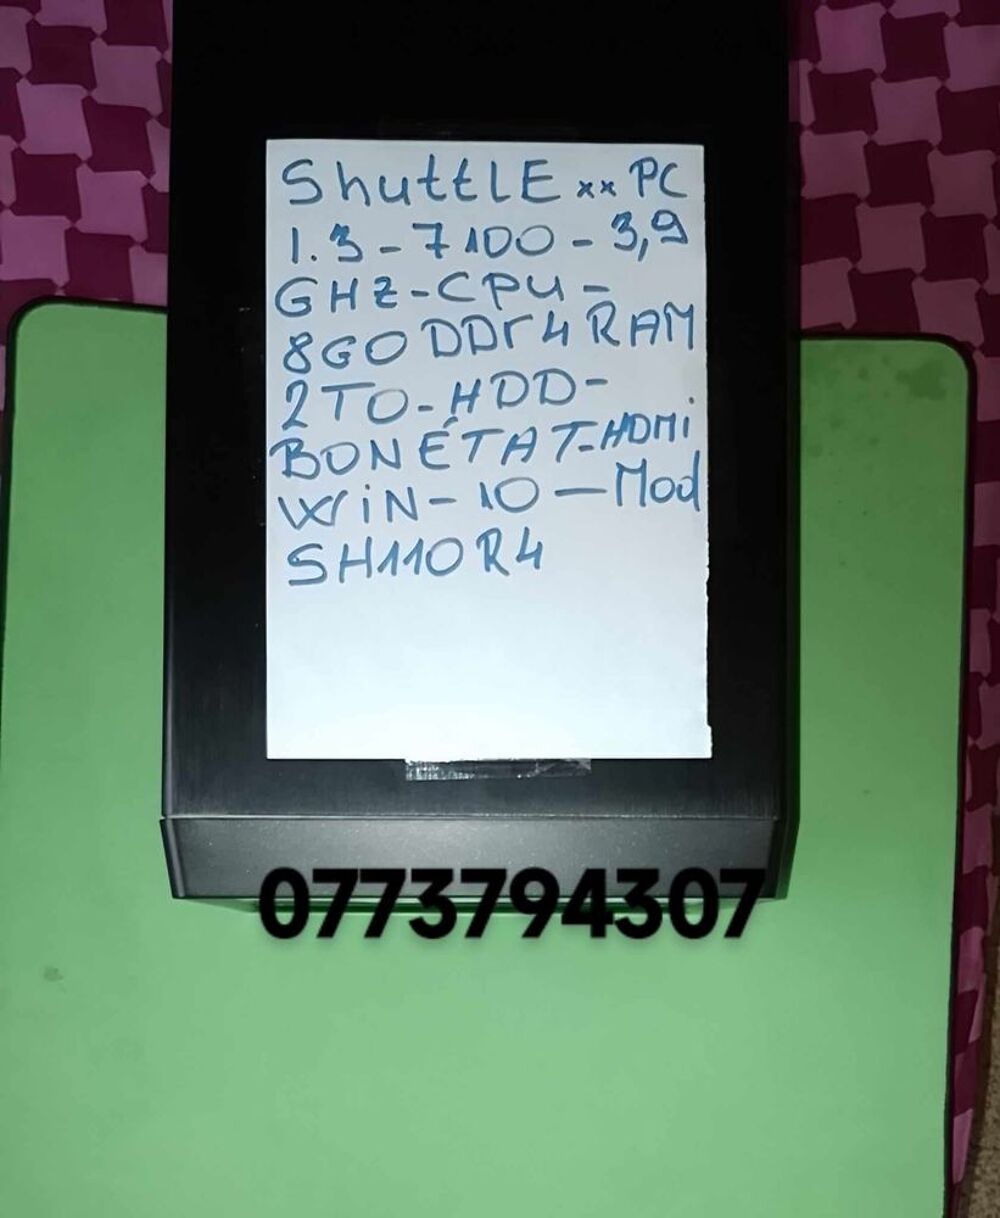 ShuttLE xx PC
1.3-7100-3,9
GHZ-CPU-
8GO DDr4 RAM
2TO-HDD-
BONÉTAT-HDMi
WiN-10-Mod
SH110R4
0773794307